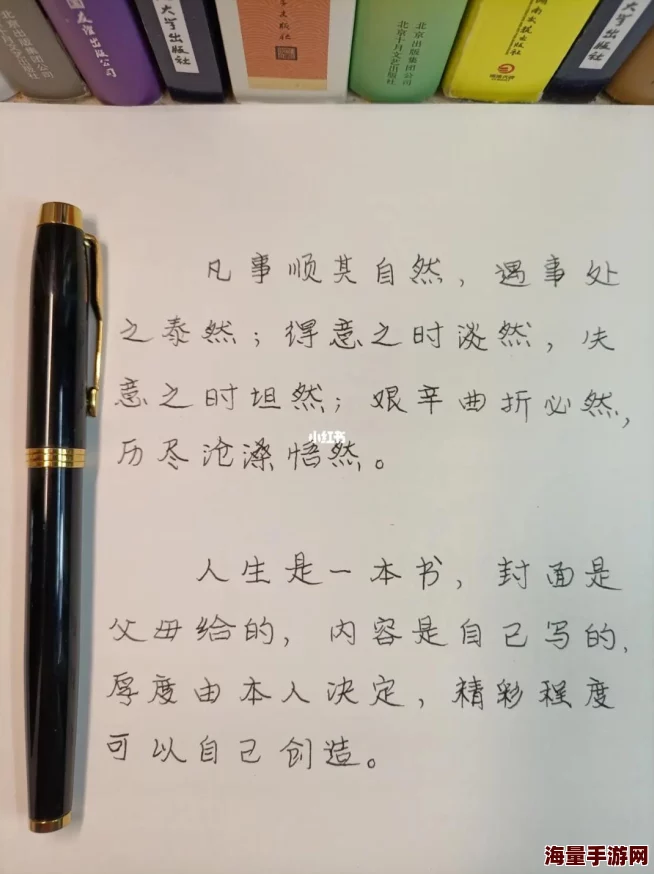 北京出版集团公司
友谊出版公司
大学出版社
文出版社
北京出版集团公司
北京十月文艺出版社
湖南文艺出版社
博集天卷
大学出版社
凡事顺其自然，遇事处
之泰然；得意之时淡然，失
意之时坦然；艰辛曲折必然，
历尽沧桑悟然。
小红书
人生是一本书，封面是
父母给的，内容是自己写的，
厚度由本人决定，精彩程度
可以自己创造。
海量手游网